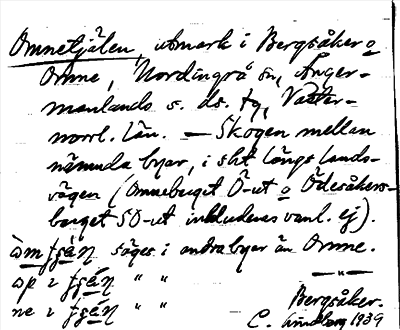 Omnetjälen, utmark i Bergsåker o
Omne, Nordingrå sn, Ånger-
manlands s. ds. tg, Väster-
norrl. län. — Skogen mellan
nämnda byar, i sht längs lands-
vägen (Omneberget Ö-ut o Ödesåkers-
berget SO-ut inkluderas vanl. ej).
säges i andra byar än Omne.
" "
" "
Bergsåker.
C. Lundberg 1939